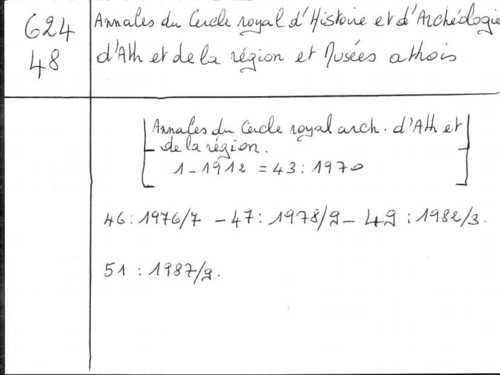 624
48
Annales du Cercle royal d'Histoire et d'Archéologie
d'Ath et de la région et Musées athois
[Annales du Cercle royal arch. d'Ath et
de la région.
1-1912 = 43 : 1970]
46 : 1976/7 - 47 : 1978/9 - 49 : 1982/3.
51 : 1987/9.